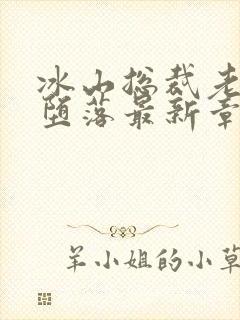 冰山总裁老
堕落最新章
羊小姐的小草